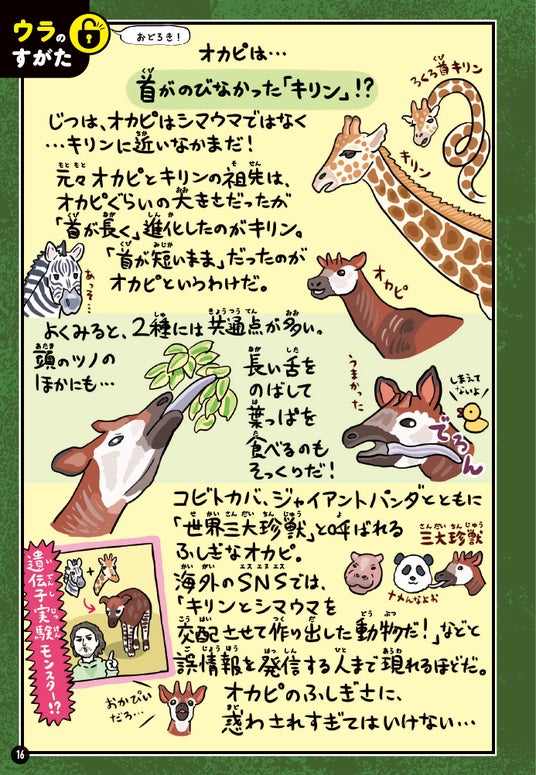 ウラの
すがた
おどろき！
オカピは…
首がのびなかった「キリン」!?
ろくろ首キリン
じつは、オカピはシマウマではなく
…キリンに近いなかまだ！
キリン
元々オカピとキリンの祖先は、
オカピぐらいの大きさだったが
「首が長く」進化したのがキリン。
「首が短いまま」だったのが
オカピというわけだ。
あっそ…
オカピ
よくみると、2種には共通点が多い。
頭のツノの
ほかにも…
長い舌を
のばして
葉っぱを
食べるのも
そっくりだ！
うまかった
しまえて
ないよ
でろん
コビトカバ、ジャイアントパンダとともに
「世界三大珍獣」と呼ばれる
ふしぎなオカピ。
三大珍獣
なめんなよお
海外のSNSでは、
「キリンとシマウマを
交配させて作り出した動物だ！」などと
誤情報を発信する人まで現れるほどだ。
遺伝子実験モンスター!?
オカピのふしぎさに、
惑わされすぎてはいけない…
おかぴい
だろ…
16